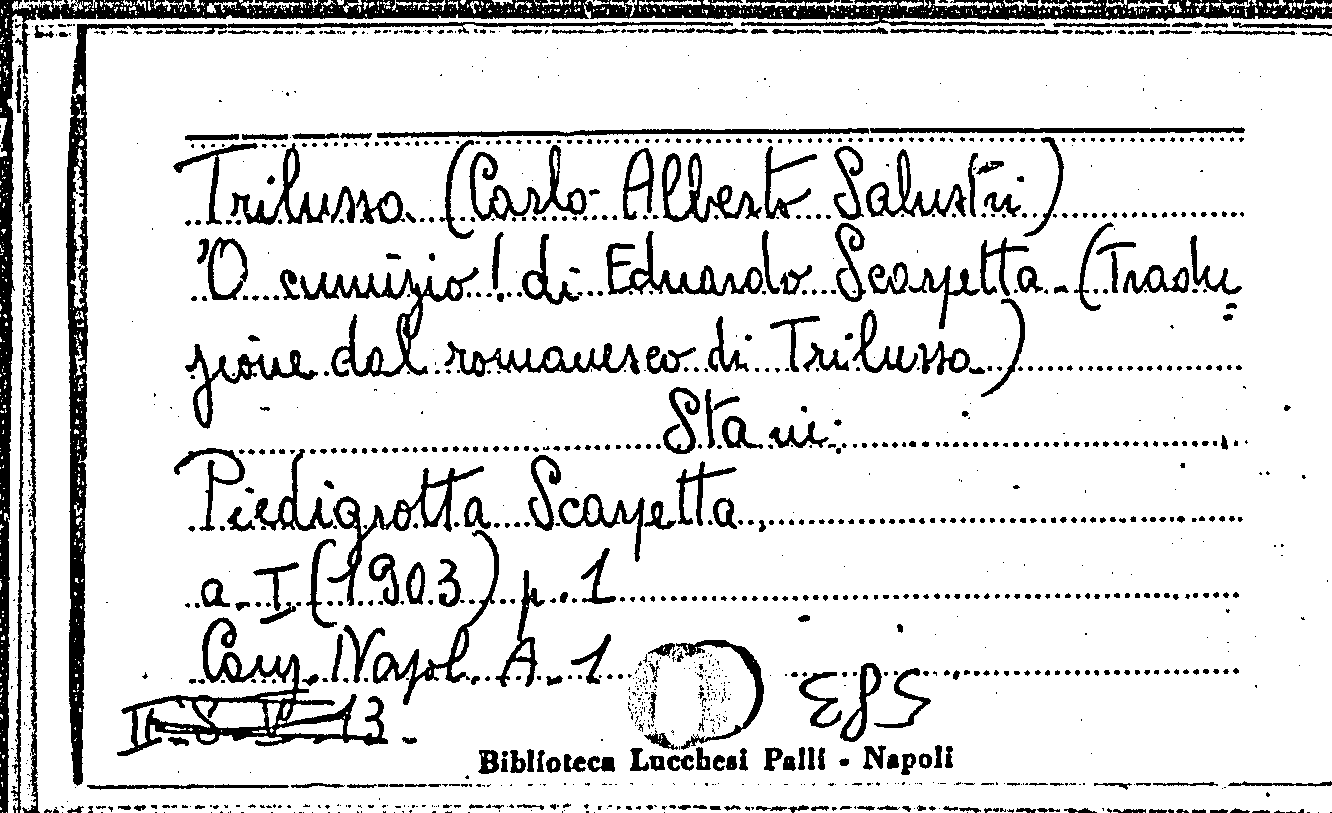 Trilussa (Carlo Alberto Salustri)
'O cumizio! di Eduardo Scarpetta - (Tradu=
zione dal romanesco di Trilussa)
Sta in:
Piedigrotta Scarpetta,
a. I (1903) p. 1
Canz. Napol. A. 1
II. S. V. 13.
Biblioteca Lucchesi Palli - Napoli